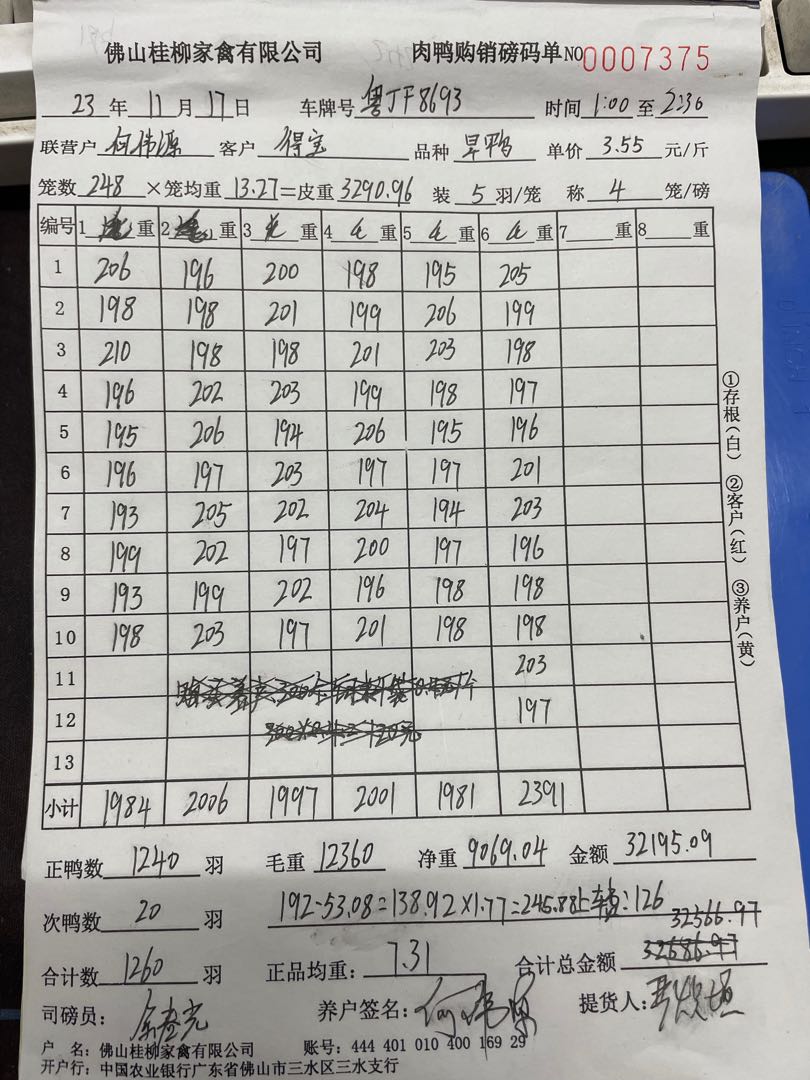 佛山桂柳家禽有限公司 肉鸭购销磅码单 NO 0007375
23 年 11 月 17 日 车牌号 粤JF8693 时间 1:00 至 2:30
联营户 何伟源 客户 得宝 品种 早鸭 单价 3.55 元/斤
笼数 248 ×笼均重 13.27 =皮重 3290.96 装 5 羽/笼 称 4 笼/磅
编号 1 重 2 重 3 重 4 重 5 重 6 重 7 重 8 重
1 206 196 200 198 195 205
2 198 198 201 199 206 199
3 210 198 198 201 203 198
4 196 202 203 199 198 197
5 195 206 194 206 195 196
6 196 197 203 197 197 201
7 193 205 202 204 194 203
8 199 202 197 200 197 196
9 193 199 202 196 198 198
10 198 203 197 201 198 198
11 203
12 197
13
小计 1984 2006 1997 2001 1981 2391
正鸭数 1240 羽 毛重 12360 净重 9069.04 金额 32195.09
次鸭数 20 羽 192-53.08=138.92×1.77=245.88 上车费:126
32566.97
合计数 1260 羽 正品均重: 7.31 合计总金额 32586.97
司磅员: 养户签名: 何伟源 提货人:
户 名: 佛山桂柳家禽有限公司 账号: 444 401 010 400 169 29
开户行: 中国农业银行广东省佛山市三水区三水支行
①存根(白) ②客户(红) ③养户(黄)